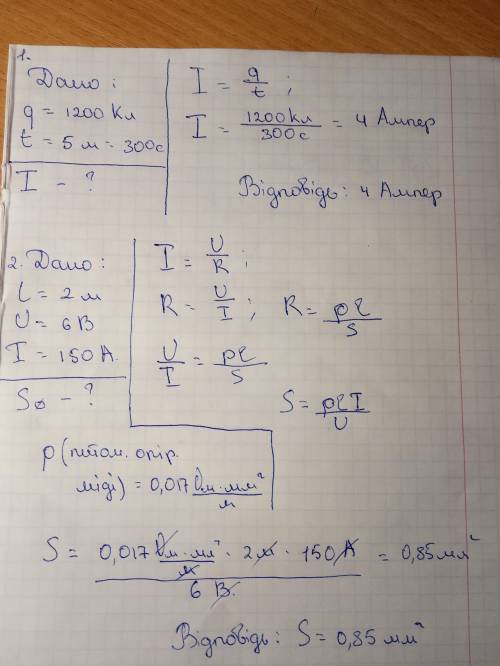 1.
Дано:
q = 1200 Кл
t = 5 м = 300с
I - ?
I = q/t ;
I = 1200Кл/300с = 4 Ампер
Відповідь: 4 Ампер
2. Дано:
l = 2 м
U = 6 В
I = 150 А.
S₀ - ?
I = U/R ;
R = U/I ; R = ρl/S
U/I = ρl/S
S = ρlI/U
ρ (питом. опір.
міді) = 0,017 Ом·мм²/м
S = 0,017 Ом·мм²/м · 2м · 150 А / 6 В. = 0,85 мм²
Відповідь: S = 0,85 мм²